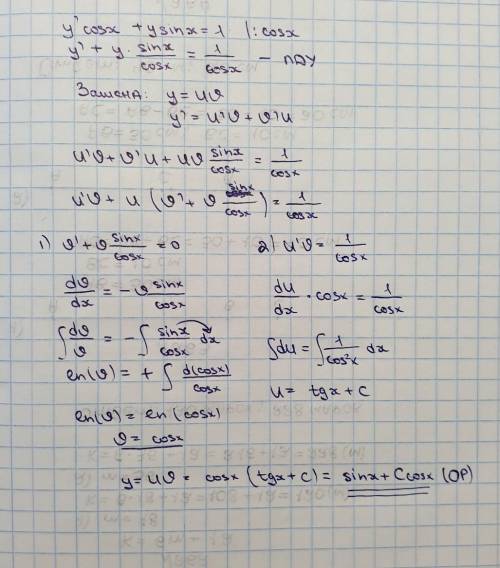 y' cosx + y sinx = 1 |: cosx
y' + y · sinx/cosx = 1/cosx — ЛДУ
Замена: y = uϑ
y' = u'ϑ + ϑ'u
u'ϑ + ϑ'u + uϑ sinx/cosx = 1/cosx
u'ϑ + u (ϑ' + ϑ sinx/cosx) = 1/cosx
1) ϑ' + ϑ sinx/cosx = 0
dϑ/dx = -ϑ sinx/cosx
∫ dϑ/ϑ = -∫ sinx/cosx dx
ln(ϑ) = + ∫ d(cosx)/cosx
ln(ϑ) = ln(cosx)
ϑ = cosx
2) u'ϑ = 1/cosx
du/dx · cosx = 1/cosx
∫du = ∫ 1/cos²x dx
u = tgx + c
y = uϑ = cosx (tgx + c) = sinx + C cosx (ОР)